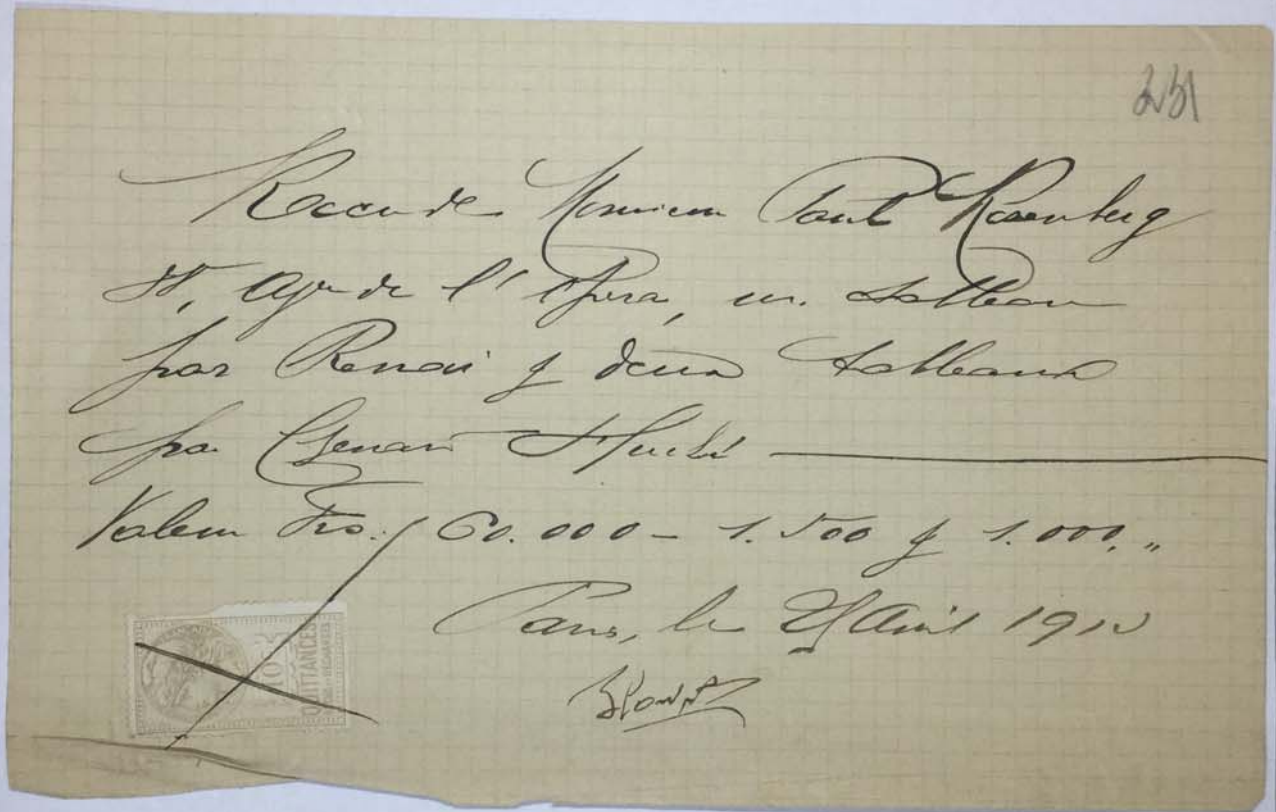 251
Reçu de Monsieur Paul Rosenberg
38, Ave de l'Opéra, un tableau
par Renoir & deux tableaux
par
Valeur Frs. 60.000 - 1.500 & 1.000,"
Paris, le Avril 1912
10
QUITTANCES